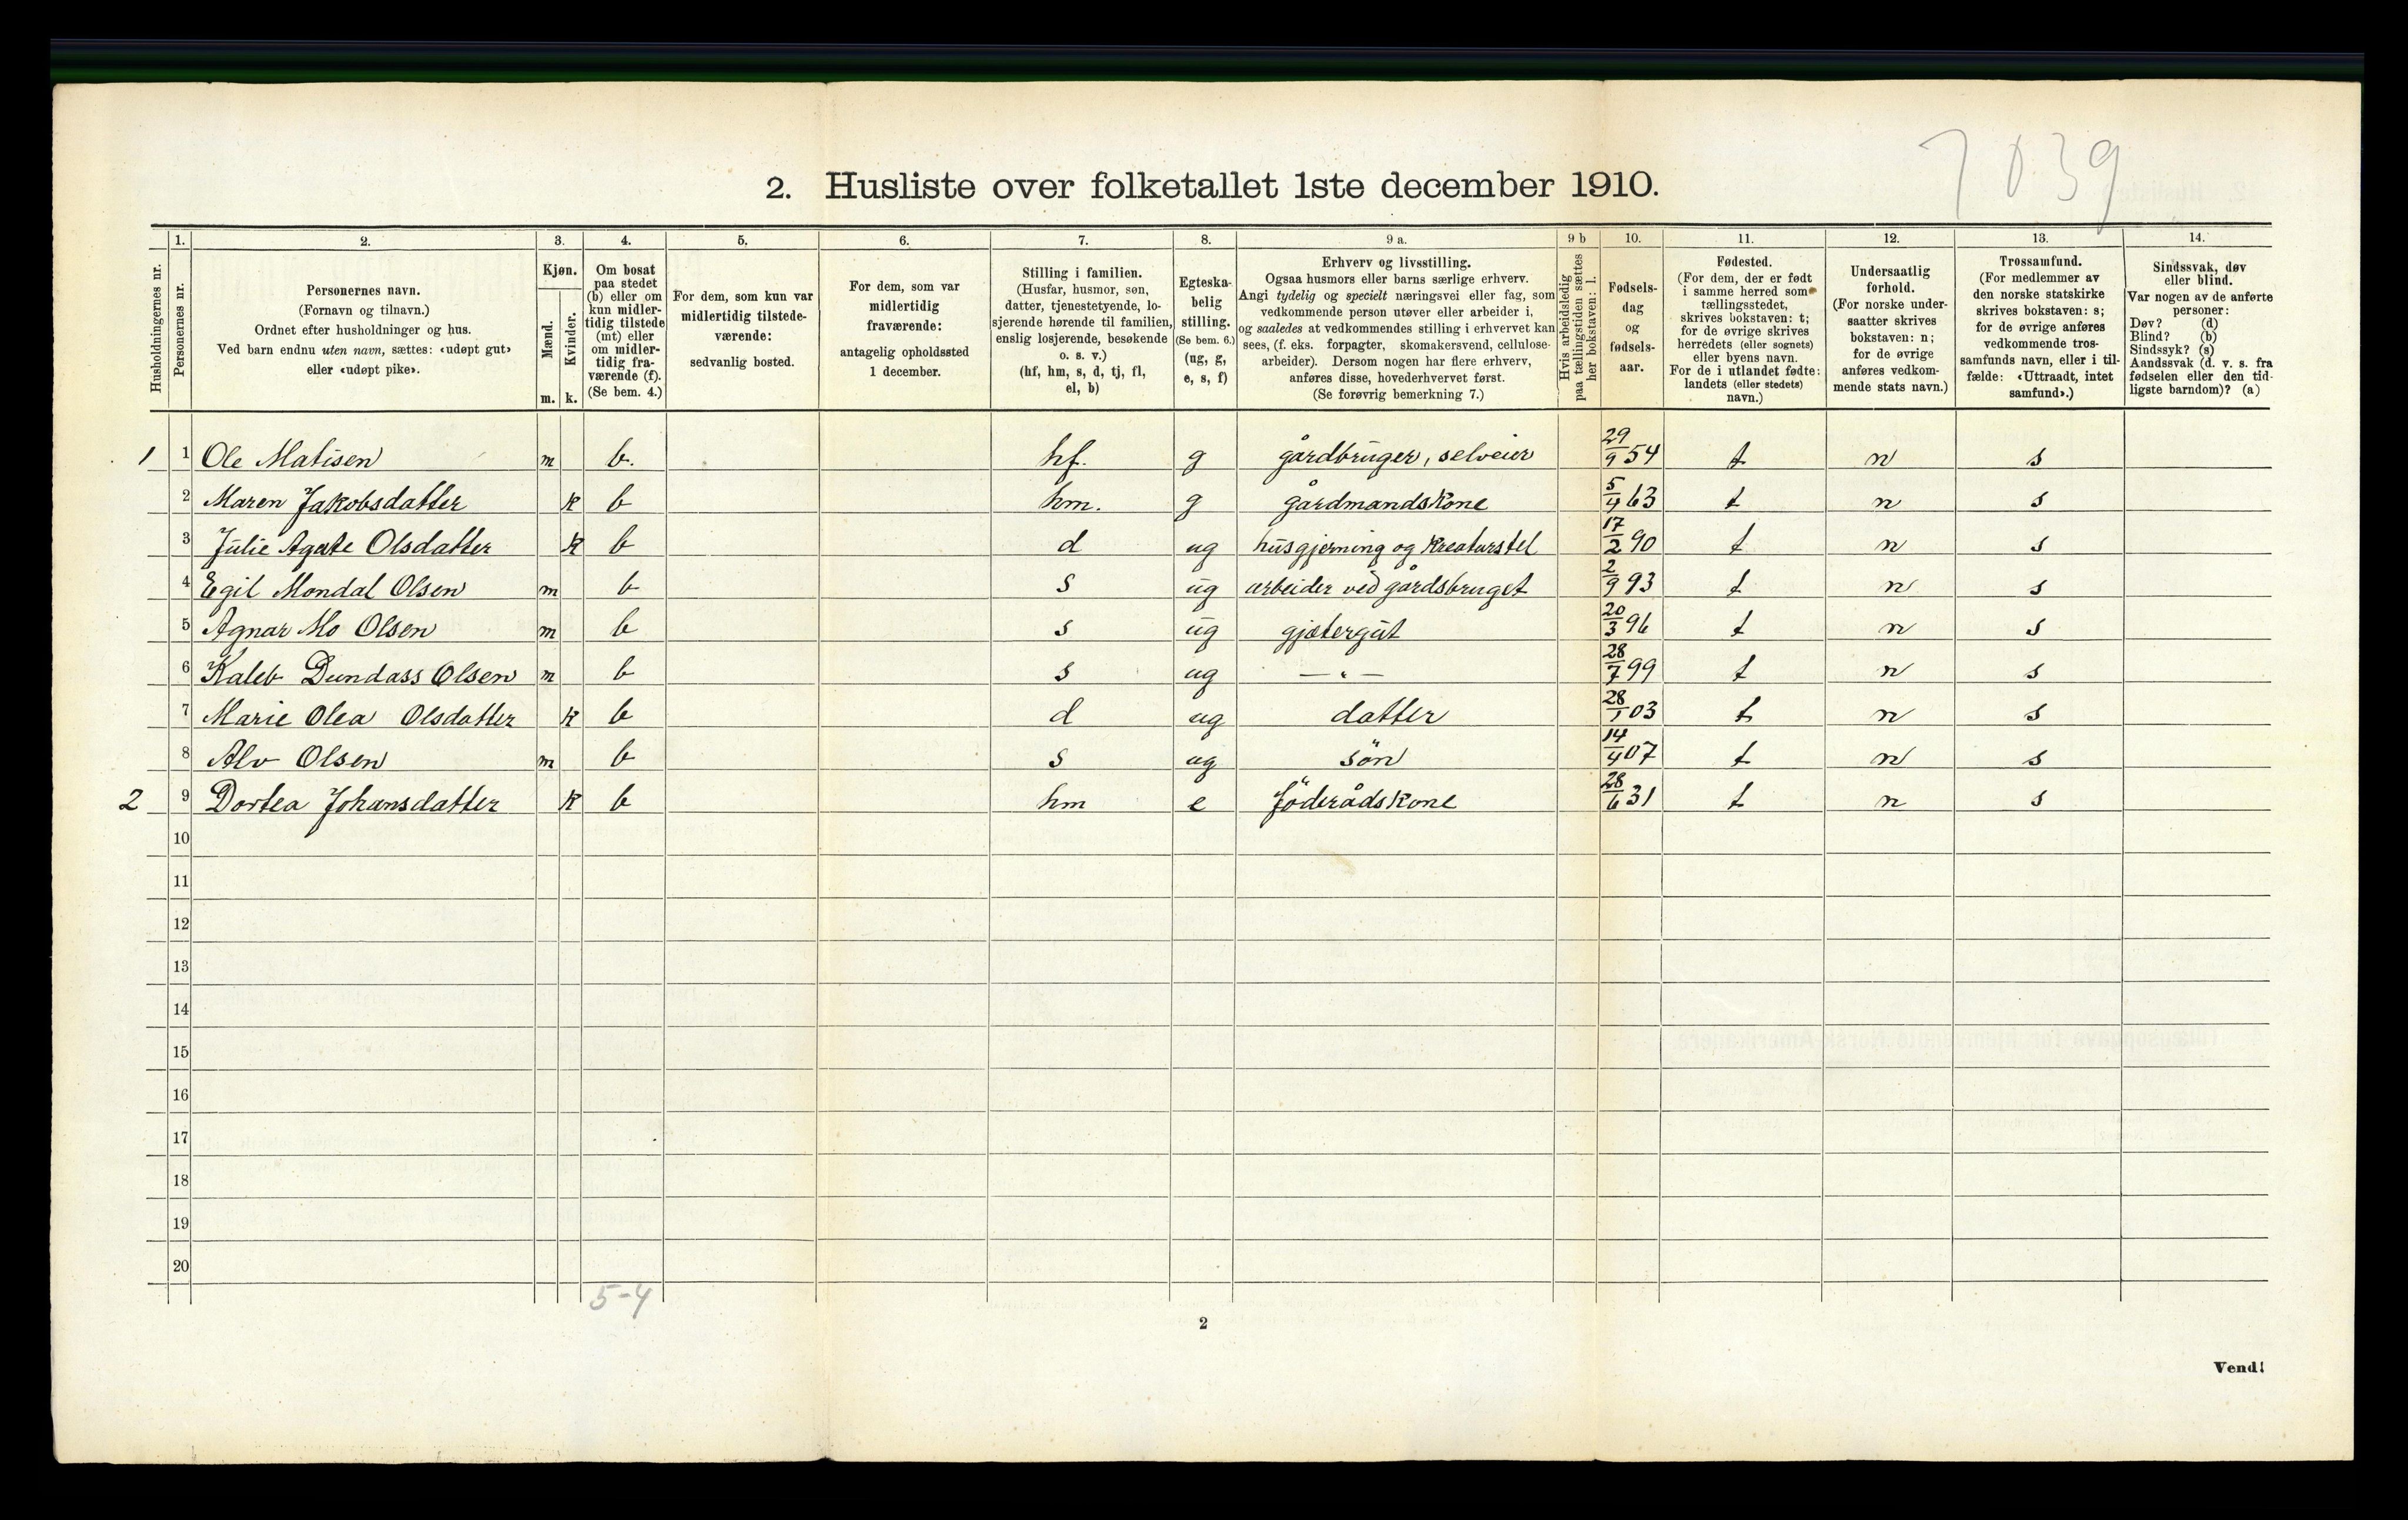 7039
2. Husliste over folketallet 1ste december 1910.
Husholdningernes nr.
1.
Personernes nr.
2.
Personernes navn.
(Fornavn og tilnavn.)
Ordnet efter husholdninger og hus.
Ved barn endnu uten navn, sættes: «udøpt gut»
eller «udøpt pike».
3.
Kjøn.
Mænd.
Kvinder.
m. k.
4.
Om bosat
paa stedet
(b) eller om
kun midler-
tidig tilstede
(mt) eller
om midler-
tidig fra-
værende (f).
(Se bem. 4.)
5.
For dem, som kun var
midlertidig tilstede-
værende:
sedvanlig bosted.
6.
For dem, som var
midlertidig
fraværende:
antagelig opholdssted
1 december.
7.
Stilling i familien.
(Husfar, husmor, søn,
datter, tjenestetyende, lo-
sjerende hørende til familien,
enslig losjerende, besøkende
o. s. v.)
(hf, hm, s, d, tj, fl,
el, b)
8.
Egteska-
belig
stilling.
(Se bem. 6.)
(ug, g,
e, s, f)
9 a.
Erhverv og livsstilling.
Ogsaa husmors eller barns særlige erhverv.
Angi tydelig og specielt næringsvei eller fag, som
vedkommende person utøver eller arbeider i,
og saaledes at vedkommendes stilling i erhvervet kan
sees, (f. eks. forpagter, skomakersvend, cellulose-
arbeider). Dersom nogen har flere erhverv,
anføres disse, hovederhvervet først.
(Se forøvrig bemerkning 7.)
9 b
Hvis arbeidsledig
paa tællingstiden sættes
her bokstaven: l.
10.
Fødsels-
dag
og
fødsels-
aar.
11.
Fødested.
(For dem, der er født
i samme herred som
tællingsstedet,
skrives bokstaven: t;
for de øvrige skrives
herredets (eller sognets)
eller byens navn.
For de i utlandet fødte:
landets (eller stedets)
navn.)
12.
Undersaatlig
forhold.
(For norske under-
saatter skrives
bokstaven: n;
for de øvrige
anføres vedkom-
mende stats navn.)
13.
Trossamfund.
(For medlemmer av
den norske statskirke
skrives bokstaven: s;
for de øvrige anføres
vedkommende tros-
samfunds navn, eller i til-
fælde: «Uttraadt, intet
samfund».)
14.
Sindssvak, døv
eller blind.
Var nogen av de anførte
personer:
Døv? (d)
Blind? (b)
Sindssyk? (s)
Aandssvak (d. v. s. fra
fødselen eller den tid-
ligste barndom)? (a)
1 1 Ole Matisen m b. hf. g gårdbruger, selveier 29/9 54 t n s
2 Maren Jakobsdatter k b hm. g gårdmandskone 5/4 63 t n s
3 Julie Agate Olsdatter k b d ug husgjerning og kreaturstel 17/2 90 t n s
4 Egil Mondal Olsen m b s ug arbeider ved gårdsbruget 2/9 93 t n s
5 Agnar Mo Olsen m b s ug gjætergut 20/3 96 t n s
6 Kaleb Dundass Olsen m b s ug — " — 28/7 99 t n s
7 Marie Olea Olsdatter k b d ug datter 28/1 03 t n s
8 Alv Olsen m b s ug sön 14/4 07 t n s
2 9 Dortea Johansdatter k b hm e föderådskone 28/6 31 t n s
10
11
12
13
14
15
16
17
18
19
20
5-4
2
Vend!